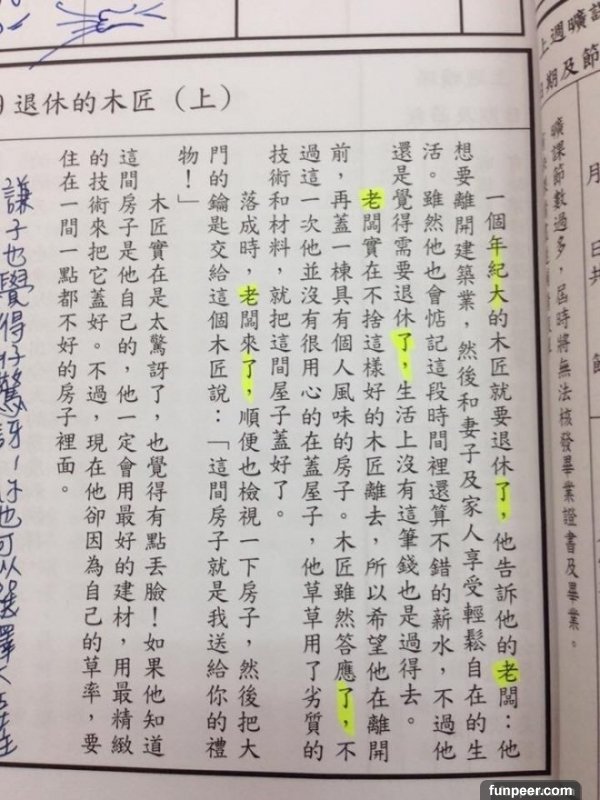 上週曠課
日期及節
月
日共
節
曠課節數過多，屆時將無法核發畢業證書及畢業。
退休的木匠（上）
一個年紀大的木匠就要退休了，他告訴他的老闆：他
想要離開建築業，然後和妻子及家人享受輕鬆自在的生
活。雖然他也會惦記這段時間裡還算不錯的薪水，不過他
還是覺得需要退休了，生活上沒有這筆錢也是過得去。
老闆實在不捨這樣好的木匠離去，所以希望他在離開
前，再蓋一棟具有個人風味的房子。木匠雖然答應了，不
過這一次他並沒有很用心的在蓋屋子，他草草用了劣質的
技術和材料，就把這間屋子蓋好了。
落成時，老闆來了，順便也檢視一下房子，然後把大
門的鑰匙交給這個木匠說：「這間房子就是我送給你的禮
物！」
木匠實在是太驚訝了，也覺得有點丟臉！如果他知道
這間房子是他自己的，他一定會用最好的建材，用最精緻
的技術來把它蓋好。不過，現在他卻因為自己的草率，要
住在一間一點都不好的房子裡面。
謙子也覺得好驚訝！
也可以選擇
funpeer.com